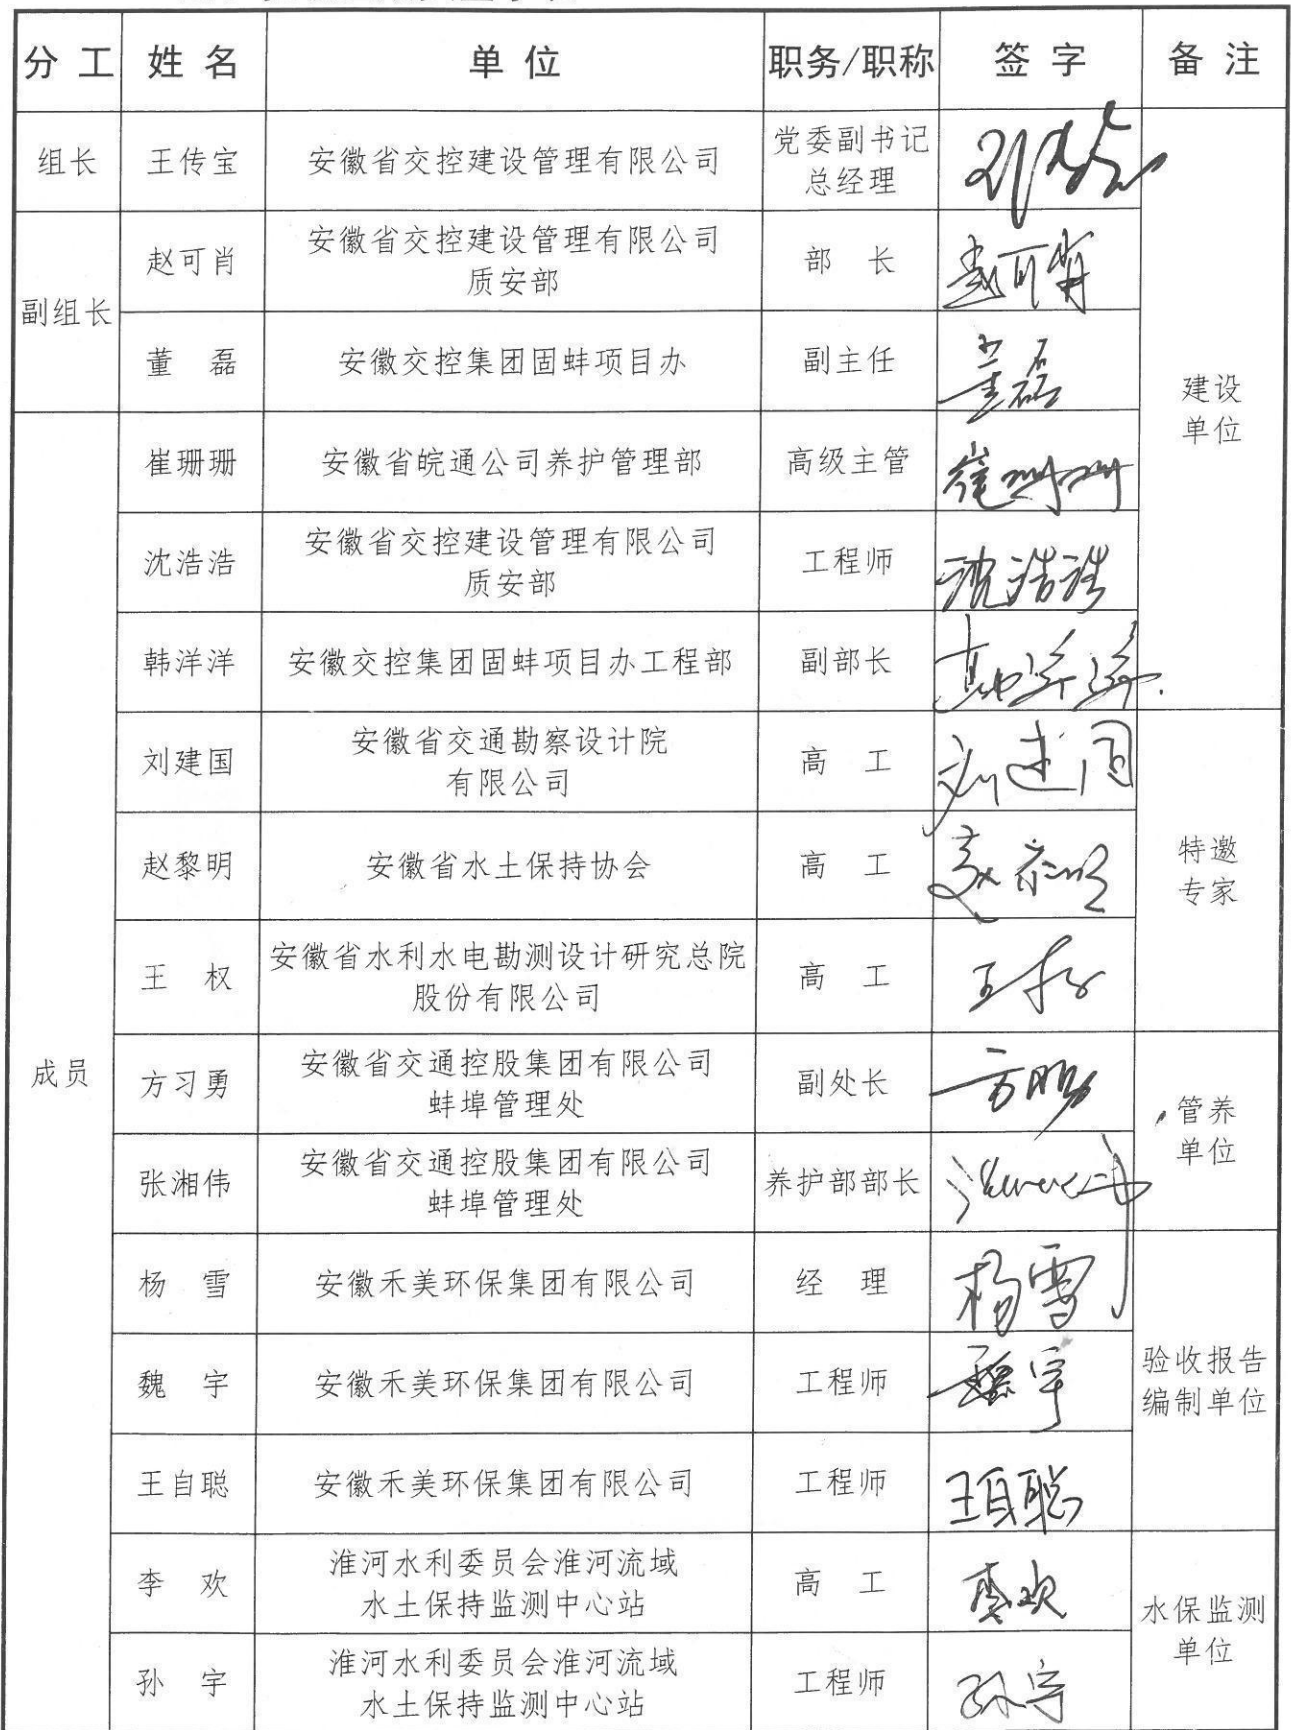 分工 姓名 单位 职务/职称 签字 备注
组长 王传宝 安徽省交控建设管理有限公司 党委副书记
总经理
副组长 赵可肖 安徽省交控建设管理有限公司
质安部 部长 赵可肖
董磊 安徽交控集团固蚌项目办 副主任 董磊
建设
单位
成员 崔珊珊 安徽省皖通公司养护管理部 高级主管 崔珊珊
沈浩浩 安徽省交控建设管理有限公司
质安部 工程师 沈浩浩
韩洋洋 安徽交控集团固蚌项目办工程部 副部长 韩洋洋
刘建国 安徽省交通勘察设计院
有限公司 高工 刘建国
赵黎明 安徽省水土保持协会 高工 赵黎明
特邀
专家
王权 安徽省水利水电勘测设计研究总院
股份有限公司 高工 王权
方习勇 安徽省交通控股集团有限公司
蚌埠管理处 副处长 方习勇
管养
单位
张湘伟 安徽省交通控股集团有限公司
蚌埠管理处 养护部部长
杨雪 安徽禾美环保集团有限公司 经理 杨雪
魏宇 安徽禾美环保集团有限公司 工程师 魏宇
验收报告
编制单位
王自聪 安徽禾美环保集团有限公司 工程师 王自聪
李欢 淮河水利委员会淮河流域
水土保持监测中心站 高工 李欢
水保监测
单位
孙宇 淮河水利委员会淮河流域
水土保持监测中心站 工程师 孙宇